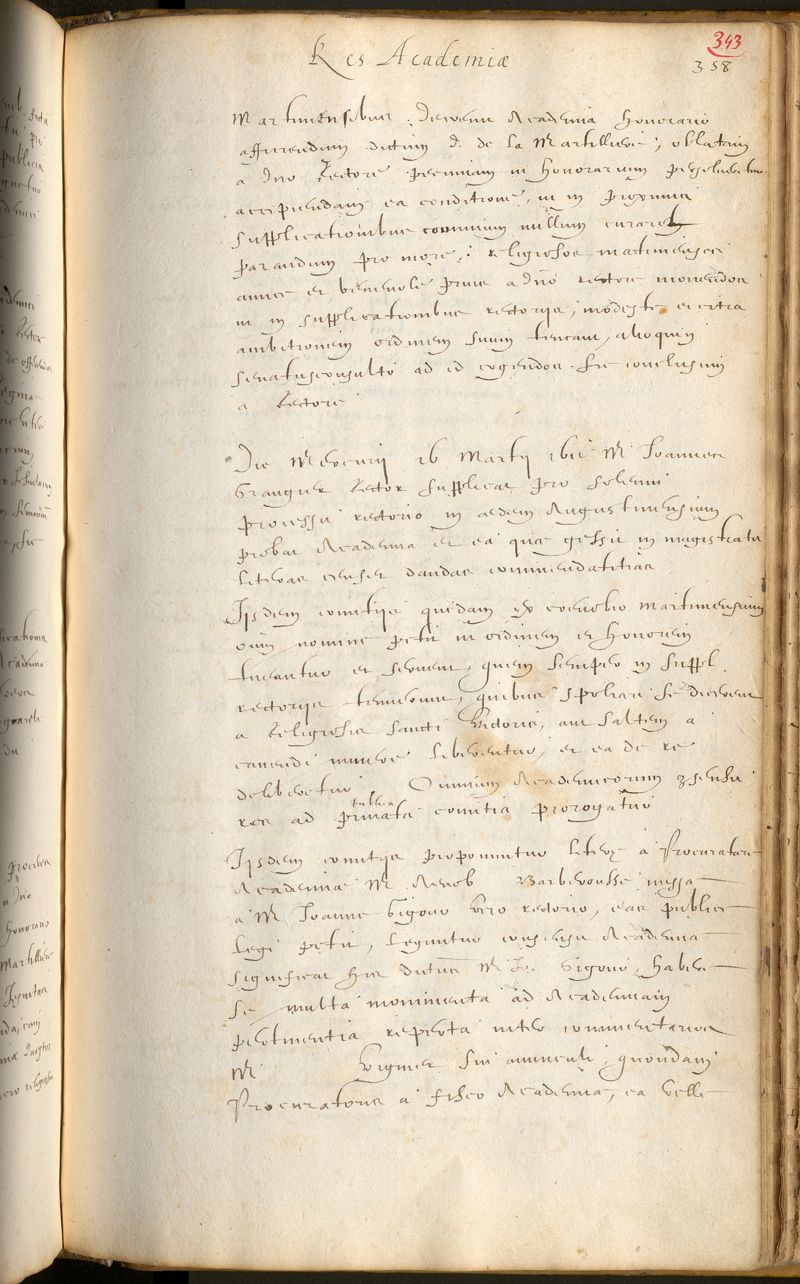 Res Academiæ
343
358
Martinensibus. Decernit Academia honorario
afficiendum dictum d. de la Martilliere, oblatam
a Dno Rectore pecuniam in honorarium
accipiendam ea conditione, ut in proximis
supplicationibus convivium nullum curaret
parandum pro more, religiosos martinenses
amice et benevole prius a Dno rectore monendos
ut in supplicationibus rectoriis, modeste et citra
ambitionem ordinem suum teneant, alioquin
senatusconsulto ad id cogendos. Sic conclusum
a Rectore
Die Mercurii 16 Martii M. Joannes
Grangier Rector supplicat pro solemni
processu rectorio in aedem Augustinensium
probat Academia et ea quae gessit in magistratu
literas censet dandas commendatitias
Iisdem comitiis quidam ex coenobio Martinensium
nomine petit ut ordinem et honorem
tueantur et servent, quem semper in suppl.
rectoriis tenuerunt, quibus spoliari se dicerent
a Religiosis Sancti Victoris, aut saltem a
canendi munere liberentur, et ea de re
deliberetur. Omnium Academicorum consensu
res ad privata publica comitia prorogatur
Iisdem comitiis proponuntur literæ a Procuratore
Academiae M. Barberousse missa
a M. Joanne Gigovo viro rectorio, eas publice
legi petit, leguntur consensu Academia
significat hic dictus M. Jo. Gigovi, habere
se multa monimenta ad Academiam
pertinentia reperta inter commentarios
M. Vignier sui avunculi, quondam
Procuratoris a fisco Academiæ, ea velle